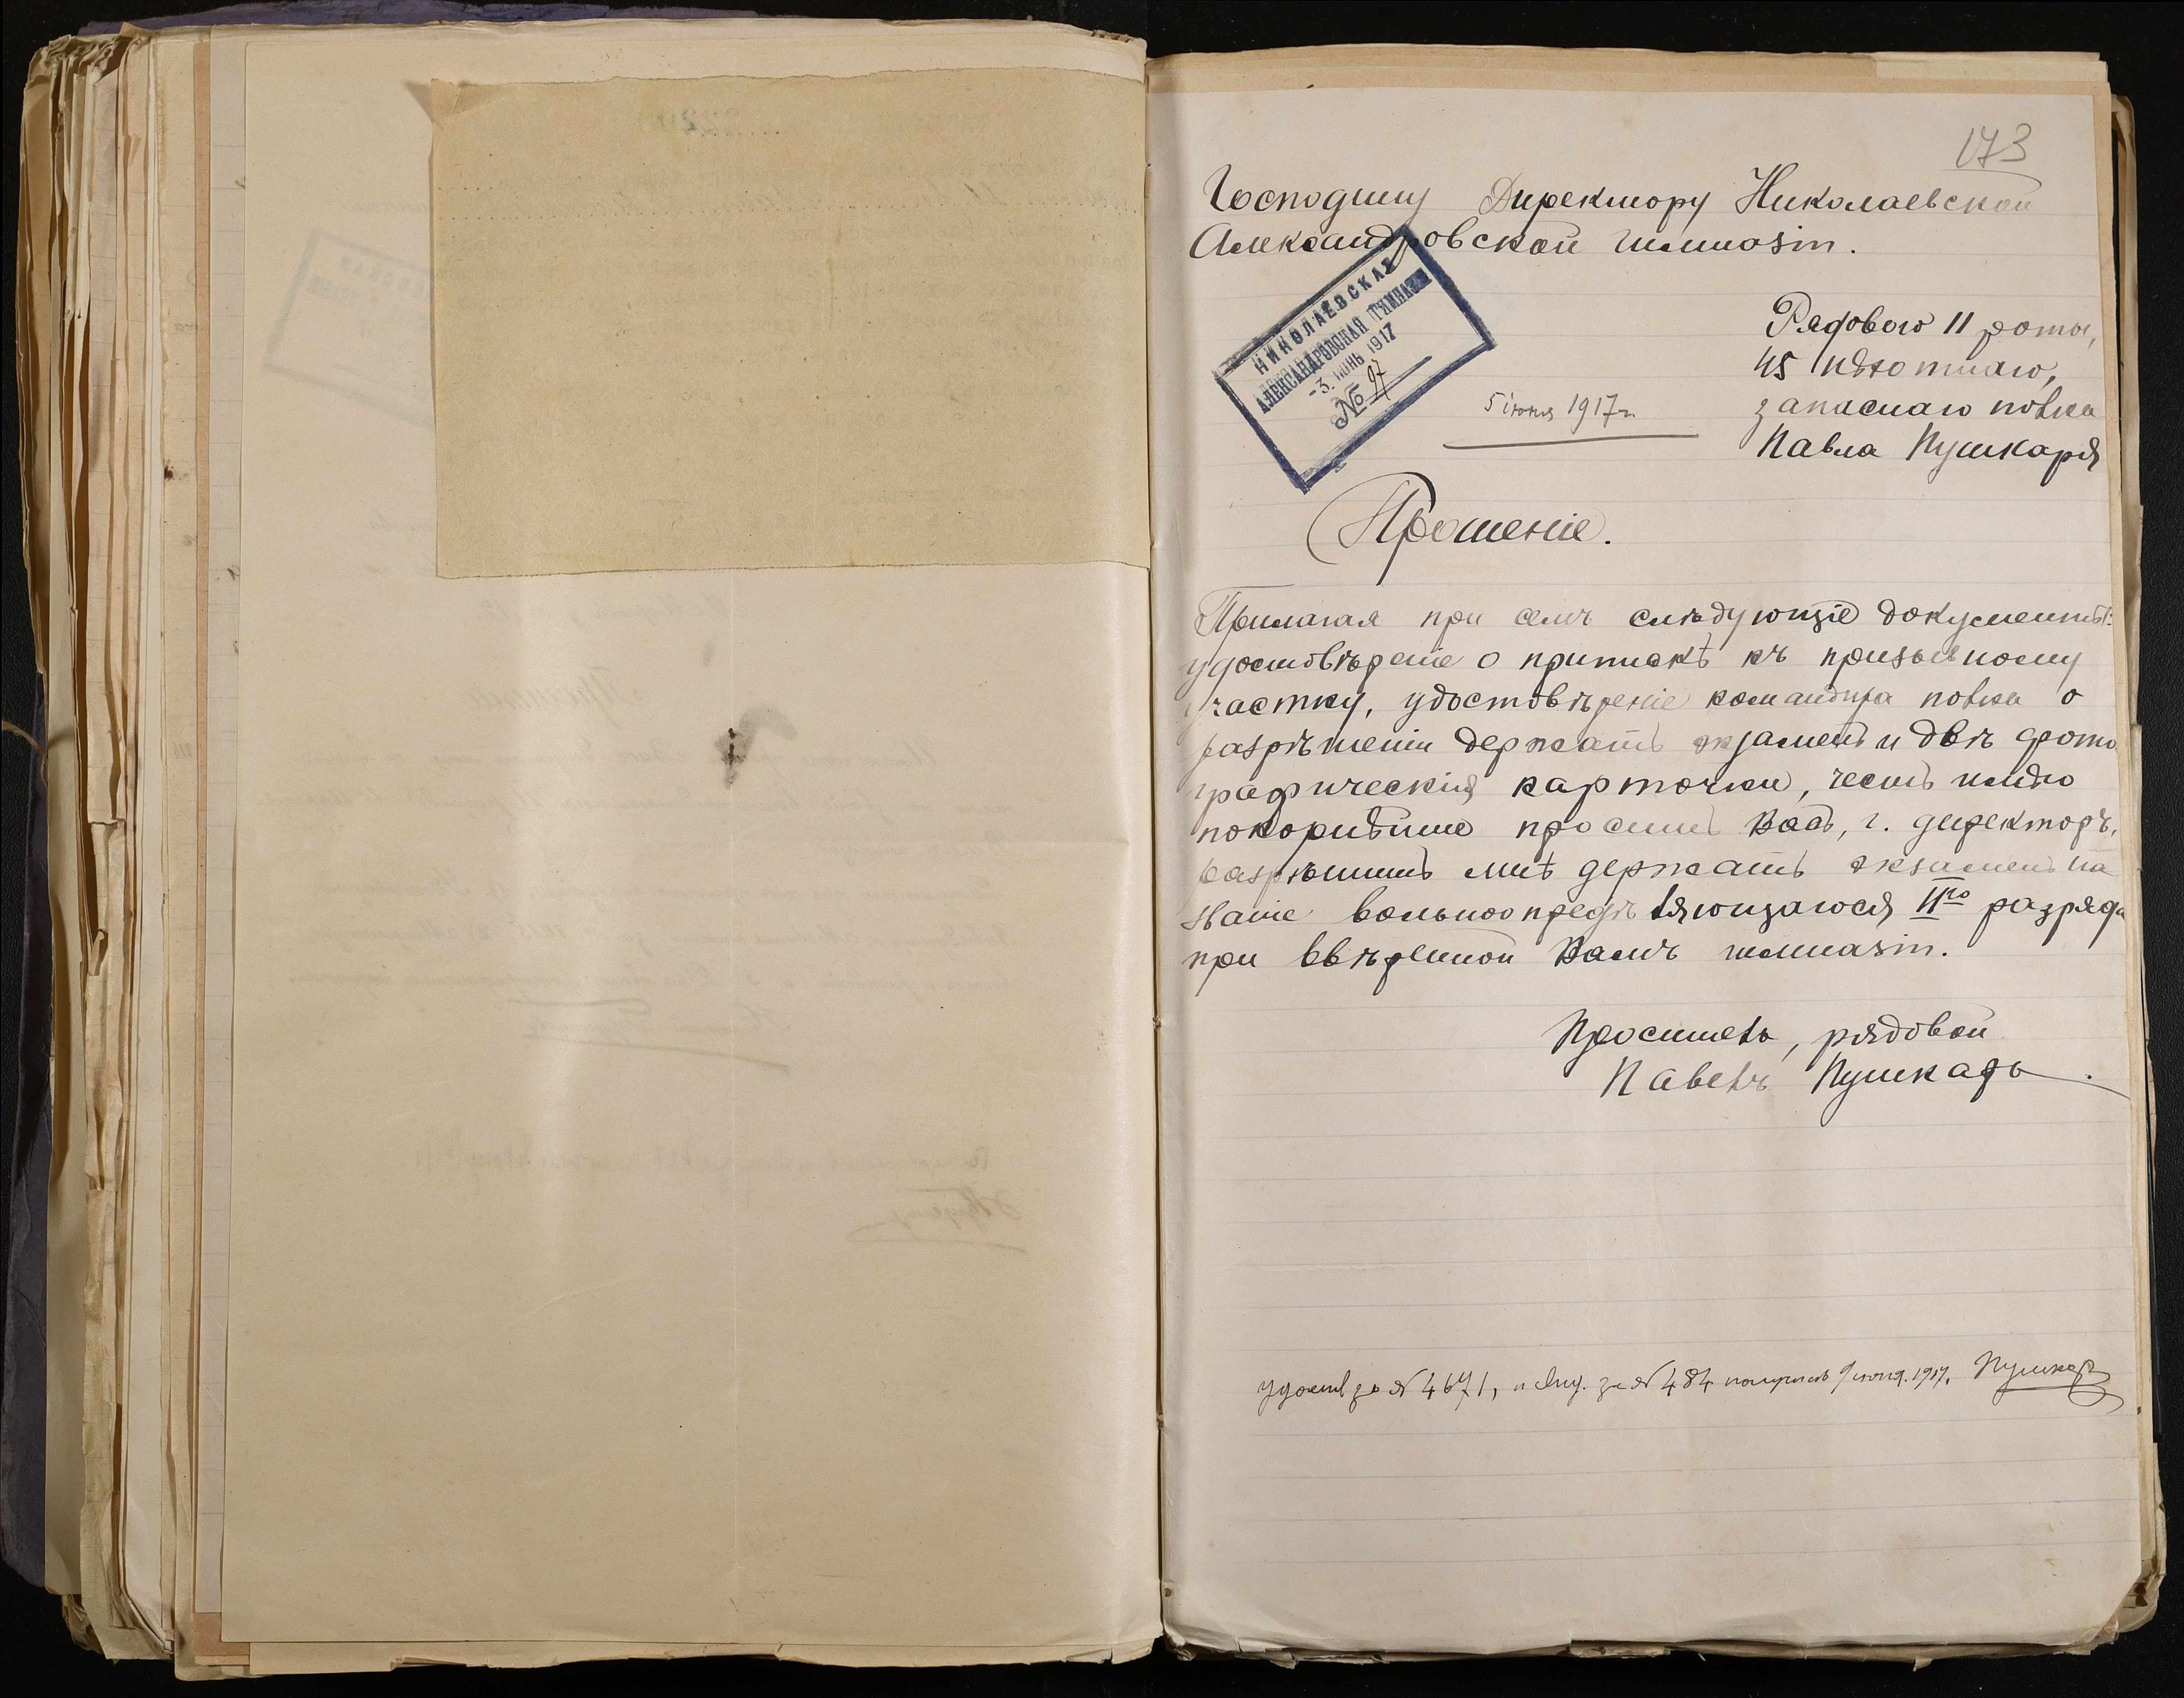 173
Господину Директору Николаевской
Александровской гимназіи.
НИКОЛАЕВСКАЯ
АЛЕКСАНДРОВСКАЯ ГИМНАЗІЯ
-3. ІЮНЬ 1917
№ 97
5 іюня 1917 г.
Рядового 11 роты,
45 пѣхотнаго,
запаснаго полка
Павла Пушкаря
Прошеніе.
Прилагая при семъ слѣдующіе документы:
удостовѣреніе о припискѣ къ призывному
участку, удостовѣреніе командира полка о
разрѣшеніи держать экзаменъ и двѣ фото
графическія карточки, честь имѣю
покорнѣйше просить Васъ, г. директоръ,
разрѣшить мнѣ держать экзаменъ на
званіе вольноопредѣляющагося IIго разряда
при ввѣренной Вамъ гимназіи.
Проситель, рядовой
Павелъ Пушкарь.
удост за № 4671, и за № 484 получилъ 9 іюня. 1917. Пушкарь